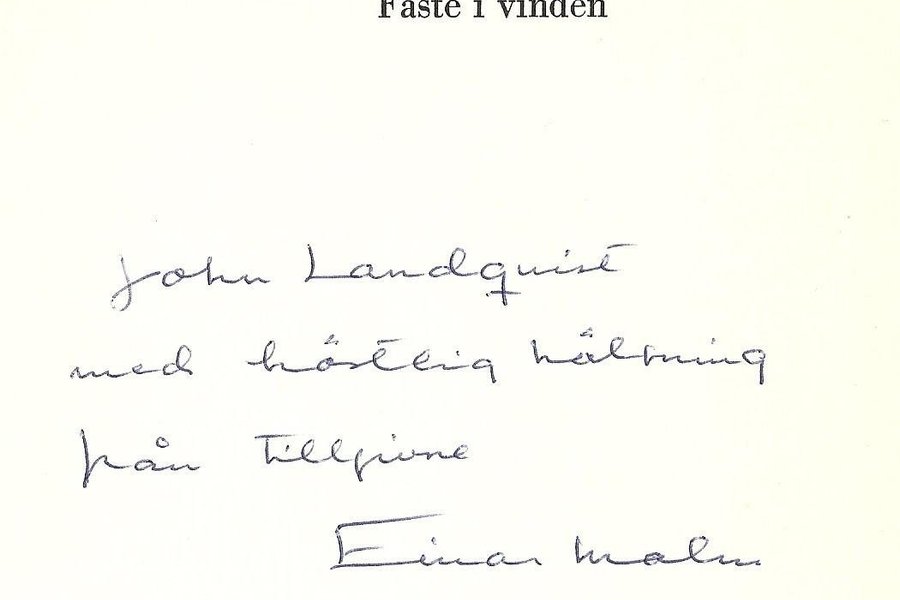 Fäste i vinden
John Landquist
med höstlig hälsning
från tillgivne
Einar Malm